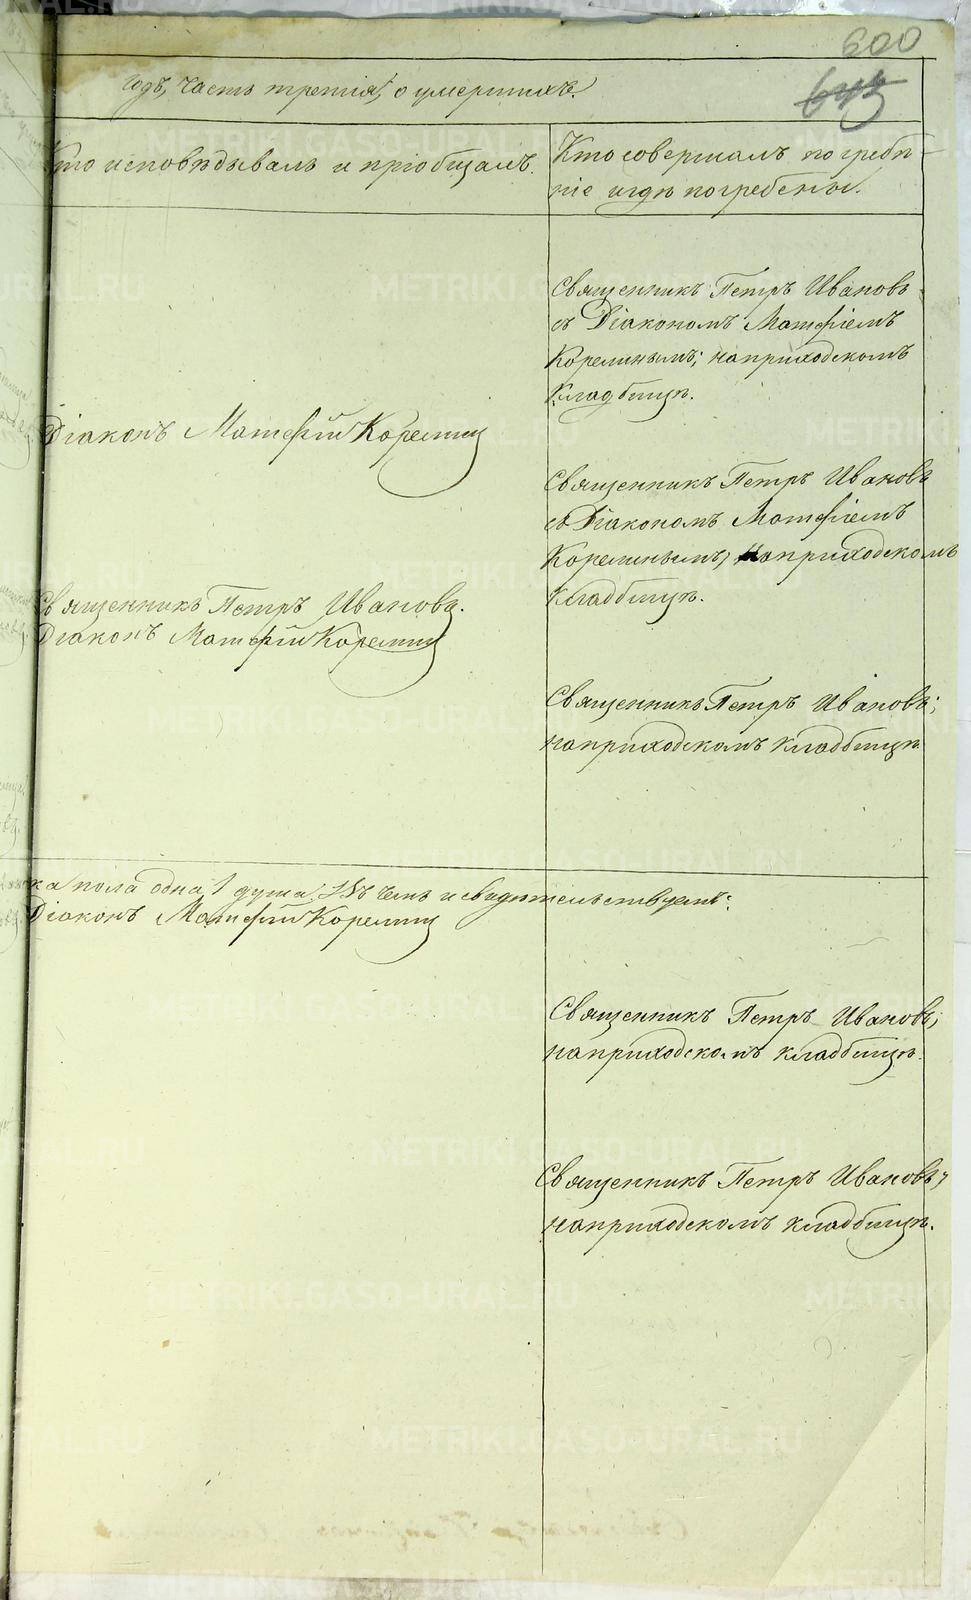 600
годъ, часть третія, о умершихъ.
Кто исповѣдывалъ и пріобщалъ.
Кто совершалъ погребе-
ніе и гдѣ погребены.
Священникъ Петръ Ивановъ
съ Діакономъ Матфіемъ
Корелинымъ; на приходскомъ
кладбищѣ.
Діаконъ Матфій Корелин
Священникъ Петръ Ивановъ
съ Діакономъ Матфіемъ
Корелинымъ, на приходскомъ
кладбищѣ.
Священникъ Петръ Ивановъ.
Діаконъ Матфій Корелин
Священникъ Петръ Ивановъ;
на приходскомъ кладбищѣ
ка пола одна 1 душа. Въ чемъ и свидѣтельствуемъ:
Діаконъ Матфій Корелин
Священникъ Петръ Ивановъ;
на приходскомъ кладбищѣ.
Священникъ Петръ Ивановъ;
на приходскомъ кладбищѣ.
METRIKI.GASO-URAL.RU